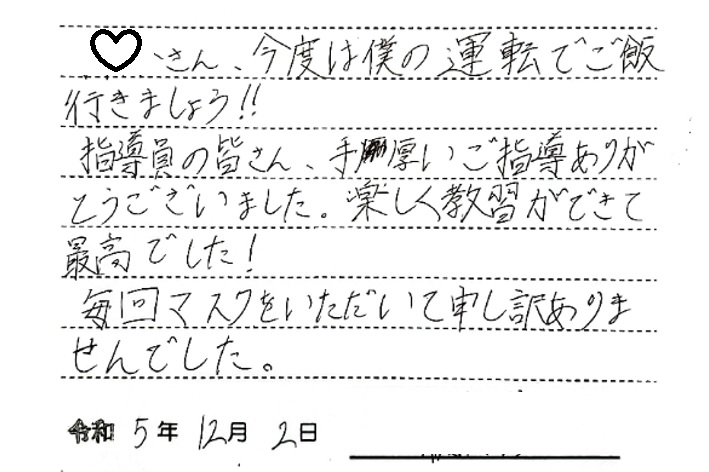 さん、今度は僕の運転でご飯
行きましょう!!
指導員の皆さん、手厚いご指導ありが
とうございました。楽しく教習ができて
最高でした!
毎回マスクをいただいて申し訳ありま
せんでした。
令和 5年 12月 2日